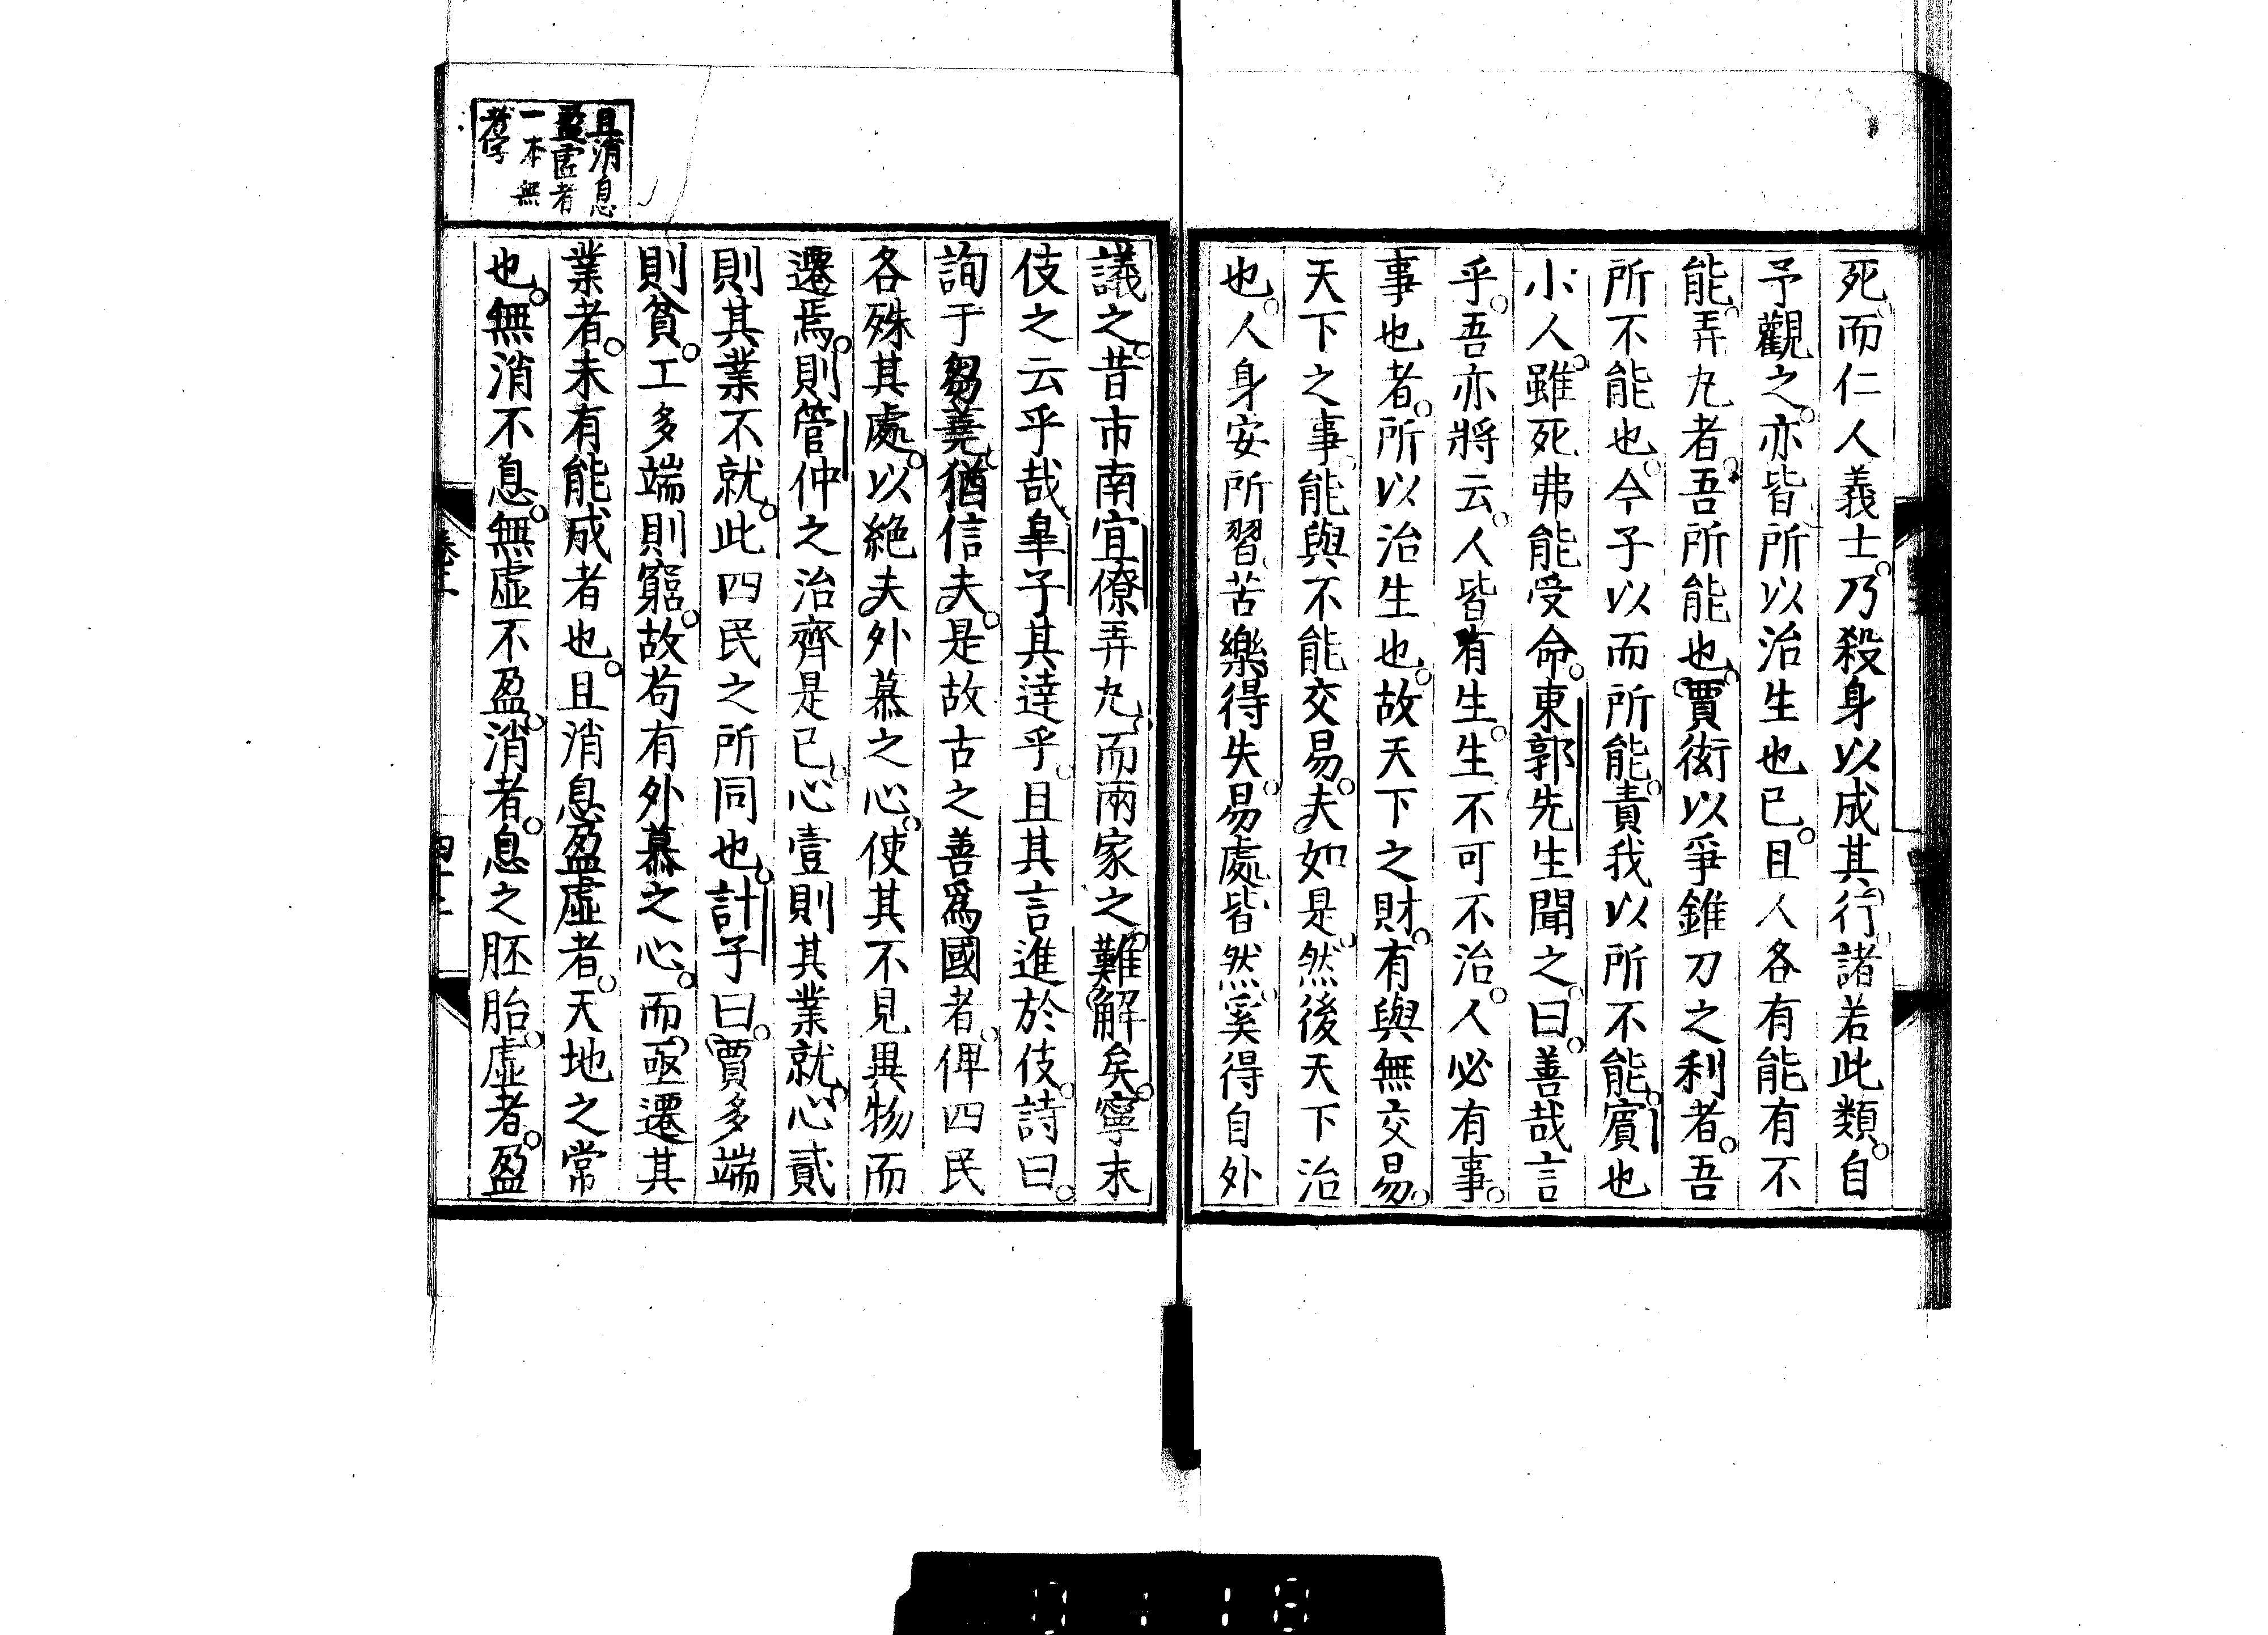 死而仁人義士。乃殺身以成其行。諸若此類。自
予觀之。亦皆所以治生也已。且人各有能有不
能。弄丸者。吾所能也。賈衒以爭錐刀之利者。吾
所不能也。今子以而所能。責我以所不能。賓也
小人。雖死弗能受命。東郭先生聞之。曰。善哉言
乎。吾亦將云。人皆有生。生不可不治。人必有事。
事也者。所以治生也。故天下之財。有與無交易。
天下之事。能與不能交易。夫如是。然後天下治
也。人身安所習。苦樂得失。易處皆然。奚得自外
議之。昔市南宜僚弄丸。而兩家之難解矣。寧末
伎之云乎哉。皐子其達乎。且其言進於伎。詩曰。
詢于芻蕘。猶信夫。是故古之善爲國者。俾四民
各殊其處。以絕夫外慕之心。使其不見異物而
遷焉。則管仲之治齊是已。心壹則其業就。心貳
則其業不就。此四民之所同也。計子曰。賈多端
則貧。工多端則窮。故苟有外慕之心。而亟遷其
業者。未有能成者也。且消息盈虛者。天地之常
也。無消不息。無虛不盈。消者。息之胚胎。虛者。盈
且消息
盈虛者
一本無
者字